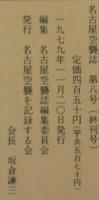 名古屋空襲誌 第八号(終刊号)
定価四百五十円(〒共五百七十円)
一九七九年一一月二〇日発行
編集 名古屋空襲誌編集委員会
発行 名古屋空襲を記録する会
会長 坂倉謙三